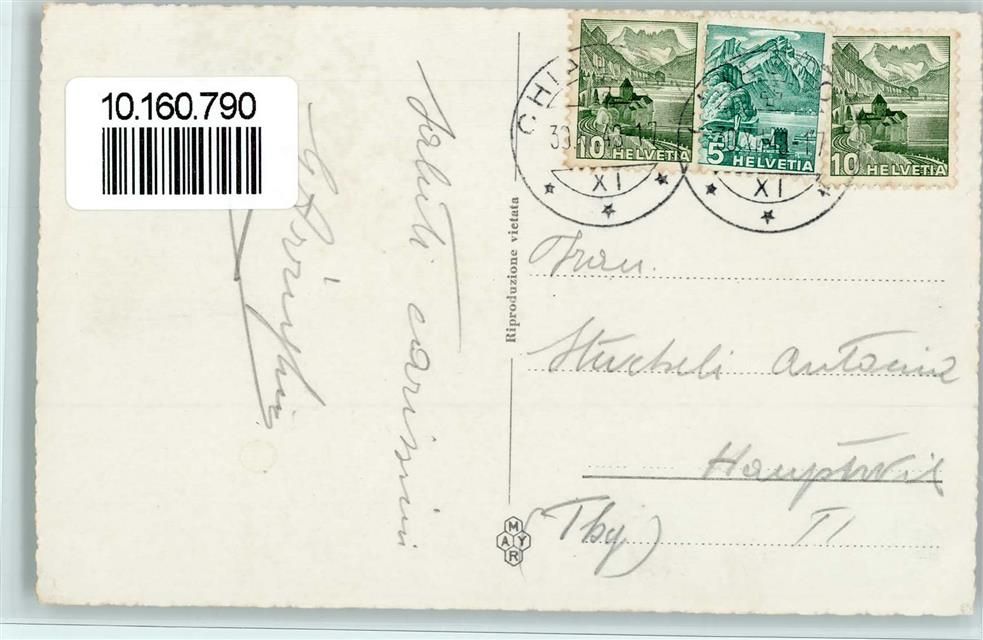 10.160.790
Saluti carissimi
Riproduzione vietata
MAYR
CHIA
XI
XI
10 HELVETIA
5 HELVETIA
10 HELVETIA
Frau.
Stucheli Antonia
Hauptwil
(Thg)